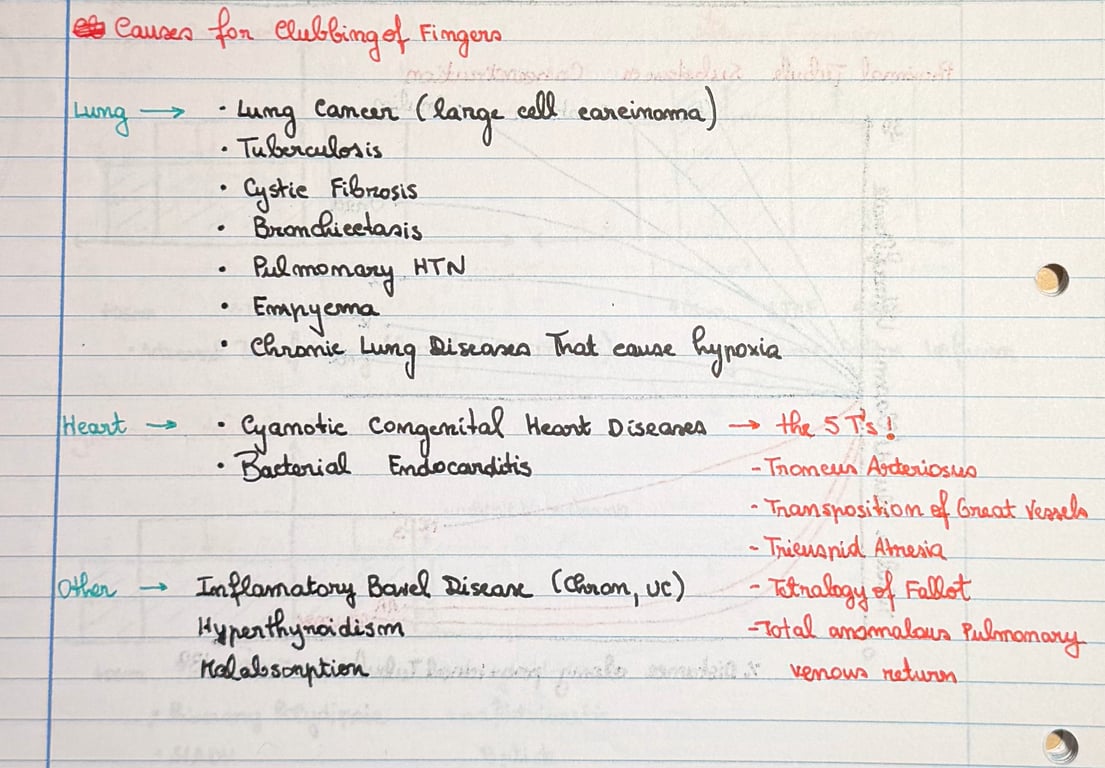 Causes for Clubbing of Fingers
Lung → • Lung Cancer (large cell carcinoma)
• Tuberculosis
• Cystic Fibrosis
• Bronchiectasis
• Pulmonary HTN
• Empyema
• Chronic Lung Diseases That cause hypoxia
Heart → • Cyanotic Congenital Heart Diseases → the 5 T's!
• Bacterial Endocarditis
- Truncus Arteriosus
- Transposition of Great Vessels
- Tricuspid Atresia
Other → Inflamatory Bowel Disease (Chron, UC)
- Tetralogy of Fallot
Hyperthyroidism
- Total anomalous Pulmonary
Malabsorption
venous return